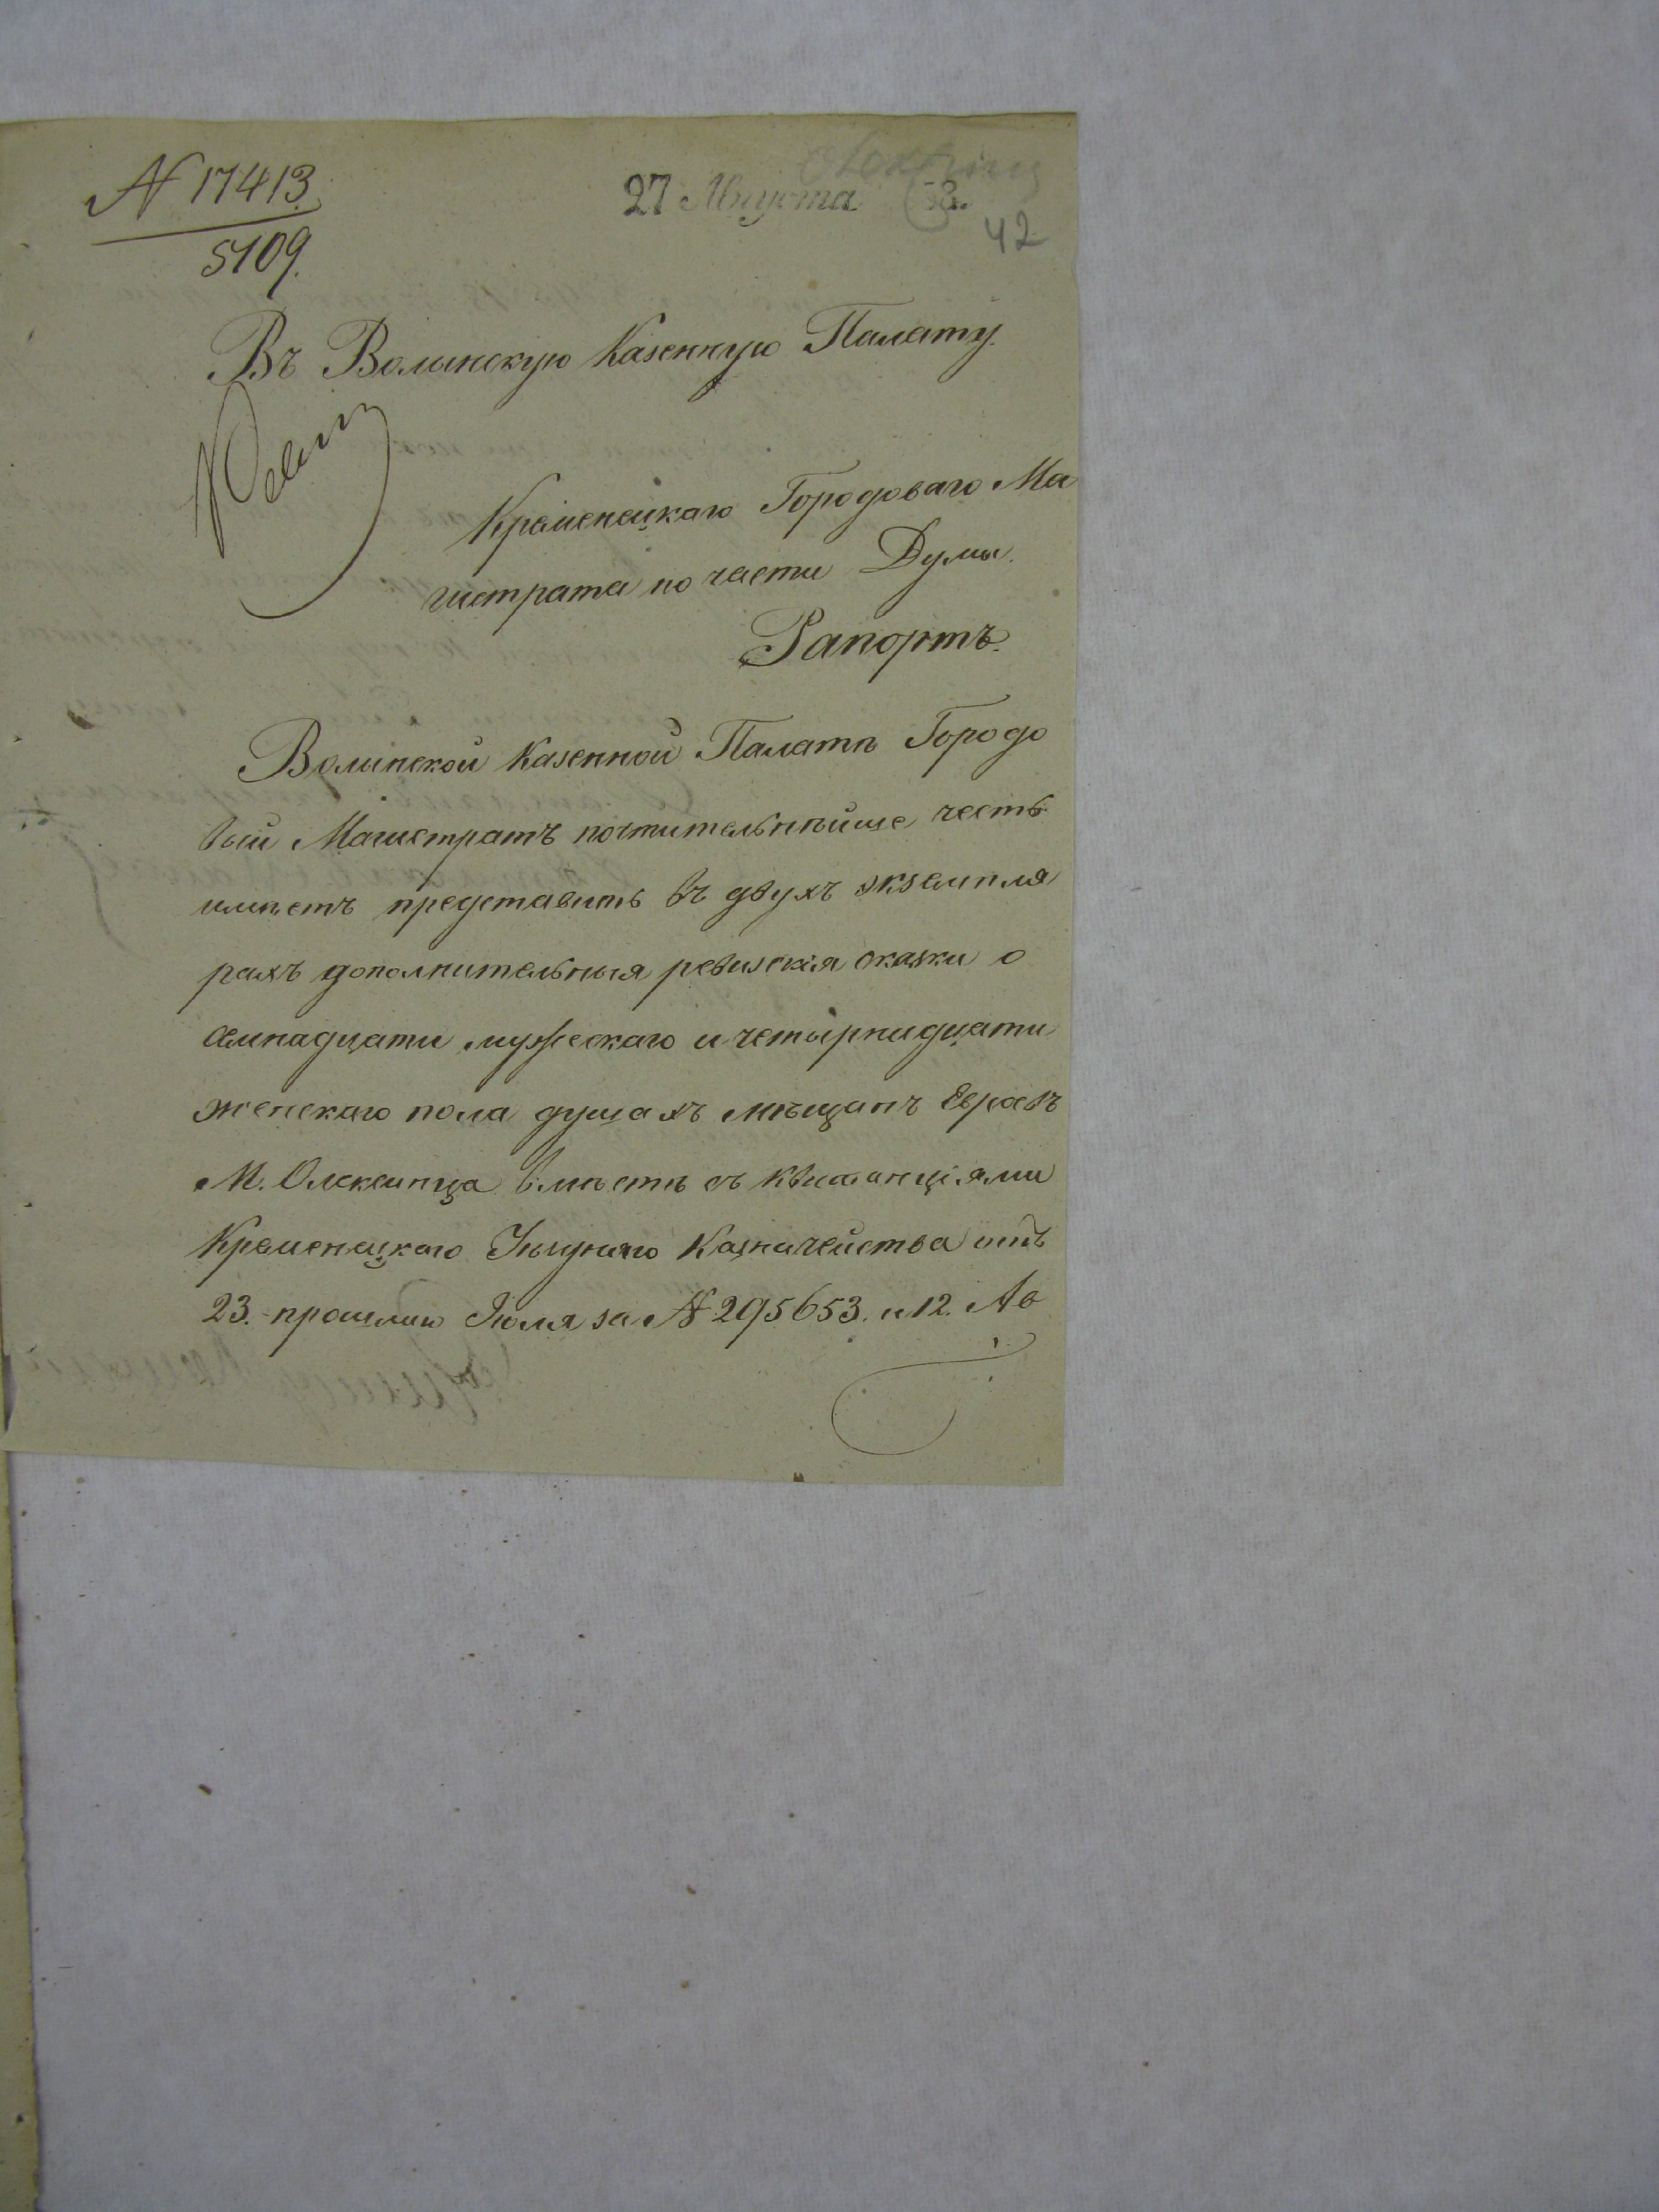 № 17413.
5109.
27 Августа 58.
42
Въ Волынскую Казенную Палату.
Кременецкаго Городоваго Ма
гистрата по части Думы.
Рапортъ.
Волынской Казенной Палатѣ Городо
вый Магистратъ почтительнѣйше честь
имѣетъ представить въ двухъ экземпля
рахъ дополнительныя ревизскія сказки о
семнадцати мужескаго и четырнидцати
женскаго пола душахъ мѣщанъ Евреевъ
М. Олексинца вмѣстѣ съ квитанціями
Кременецкаго Уѣзднаго Казначейства отъ
23. прошлаго Іюля за № 295653. и 12. Ав